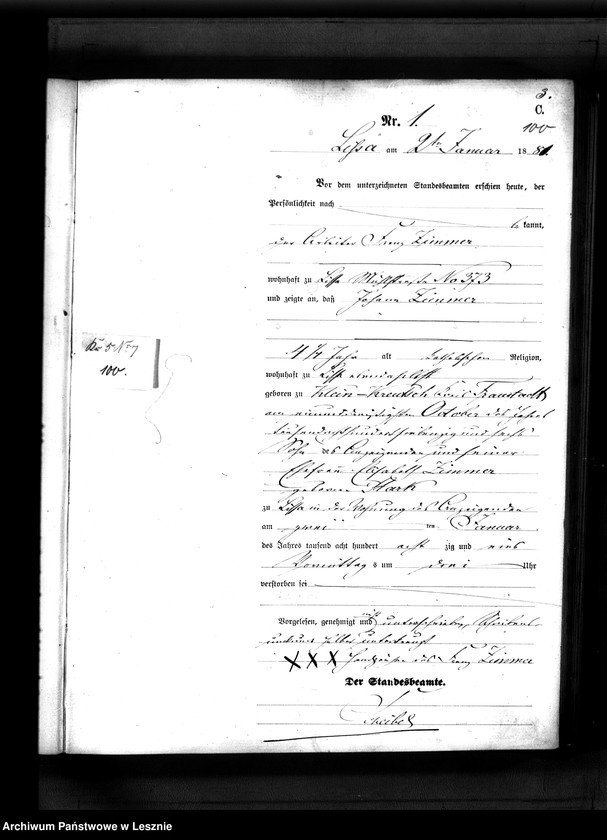 3.
C.
100
Nr. 1.
Lissa am 2ten Januar 1881.
Vor dem unterzeichneten Standesbeamten erschien heute, der
Persönlichkeit nach
bekannt,
der Arbeiter Franz Zimmer
wohnhaft zu Lissa No 373
und zeigte an, daß Johann Zimmer
4 1/4 Jahr alt katholischer Religion,
wohnhaft zu Lissa
geboren zu Klein-Kreutsch Kreis Fraustadt
am October des Jahres
tausendachthundert siebenzig und sechs
Sohn des Anzeigenden und seiner
Ehefrau Elisabeth Zimmer
geborene Stark
zu Lissa in der Wohnung des Anzeigenden
am zwei ten Januar
des Jahres tausend acht hundert acht zig und eins
Vormittags um drei Uhr
verstorben sei
Vorgelesen, genehmigt und nicht unterschrieben, Schreibens-
unkund
XXX Handzeichen des Franz Zimmer
Der Standesbeamte.
Scheibel
No 7
100.
Archiwum Państwowe w Lesznie